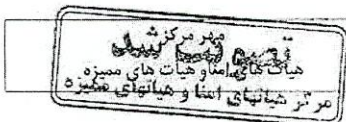 مهر مرکزش
هیات های امنا و هیات های ممیزه
مرکز هیاتهای امنا و هیاتهای ممیزه